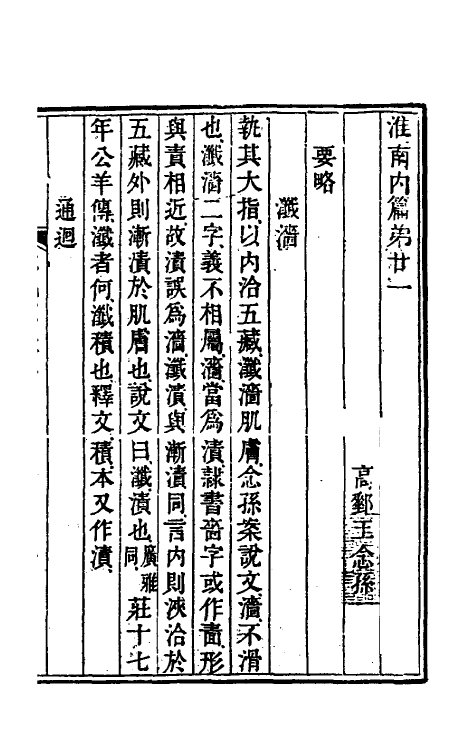 淮南內篇弟廿一
高郵王念孫
要略
瀸濇
執其大指以內洽五藏瀸濇肌膚念孫案說文濇不滑
也瀸濇二字義不相屬濇當爲漬隸書嗇字或作啬形
與責相近故漬誤爲濇瀸漬與漸漬同言內則浹洽於
五藏外則漸漬於肌膚也說文曰瀸漬也廣雅同莊十七
年公羊傳瀸者何瀸積也釋文積本又作漬
通迵